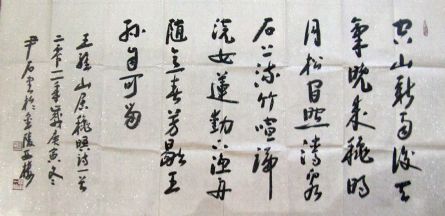 空山新雨後天
氣晚來穐明
月松間照清泉
石上流竹喧歸
浣女蓮動下漁舟
隨意春芳歇王
孫自可留
王維山居穐暝詩一首
二零一一年歲庚寅冬
尹石書於金陵